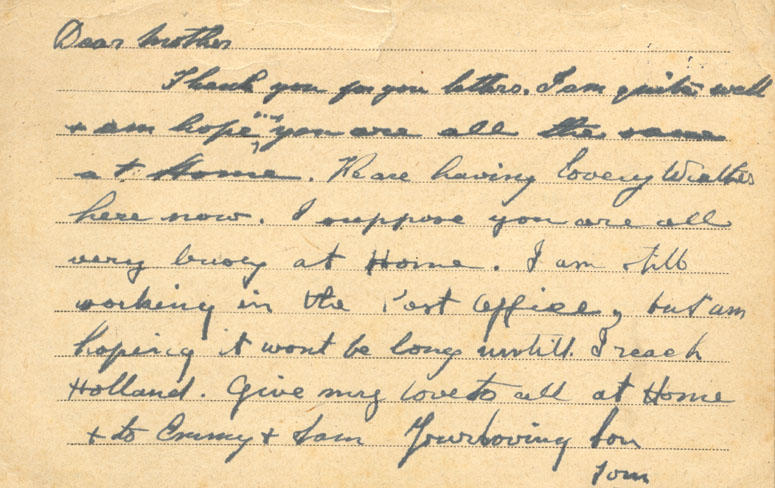 Dear Mother
Thank you for you letters. I am quite well
+ am hope ing you are all the same
at Home. We are having Lovery Weather
here now. I suppose you are all
very busey at Home. I am still
working in the Post Office, but am
hoping it wont be long untill I reach
Holland. Give my love to all at Home
+ to Emmy + Sam Your Loving Son
Tom